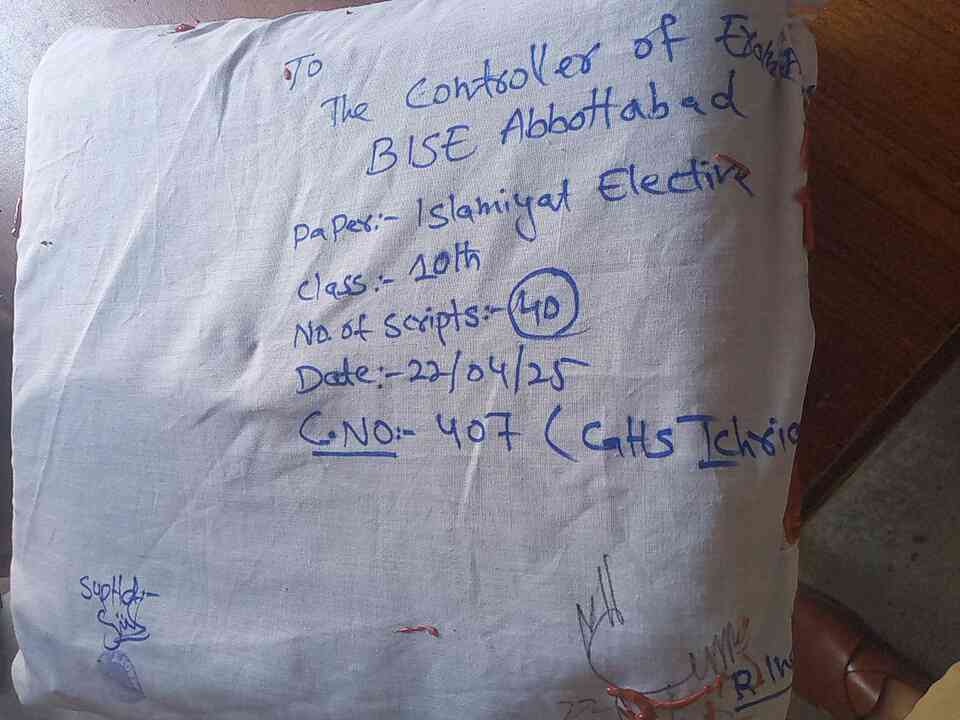 To
The Controller of Exam
BISE Abbottabad
Paper:- Islamiyat Elective
Class:- 10th
No. of Scripts:- 40
Date:- 22/04/25
C.NO:- 407 (GHS Ichria
Suptd:-
R.In
22